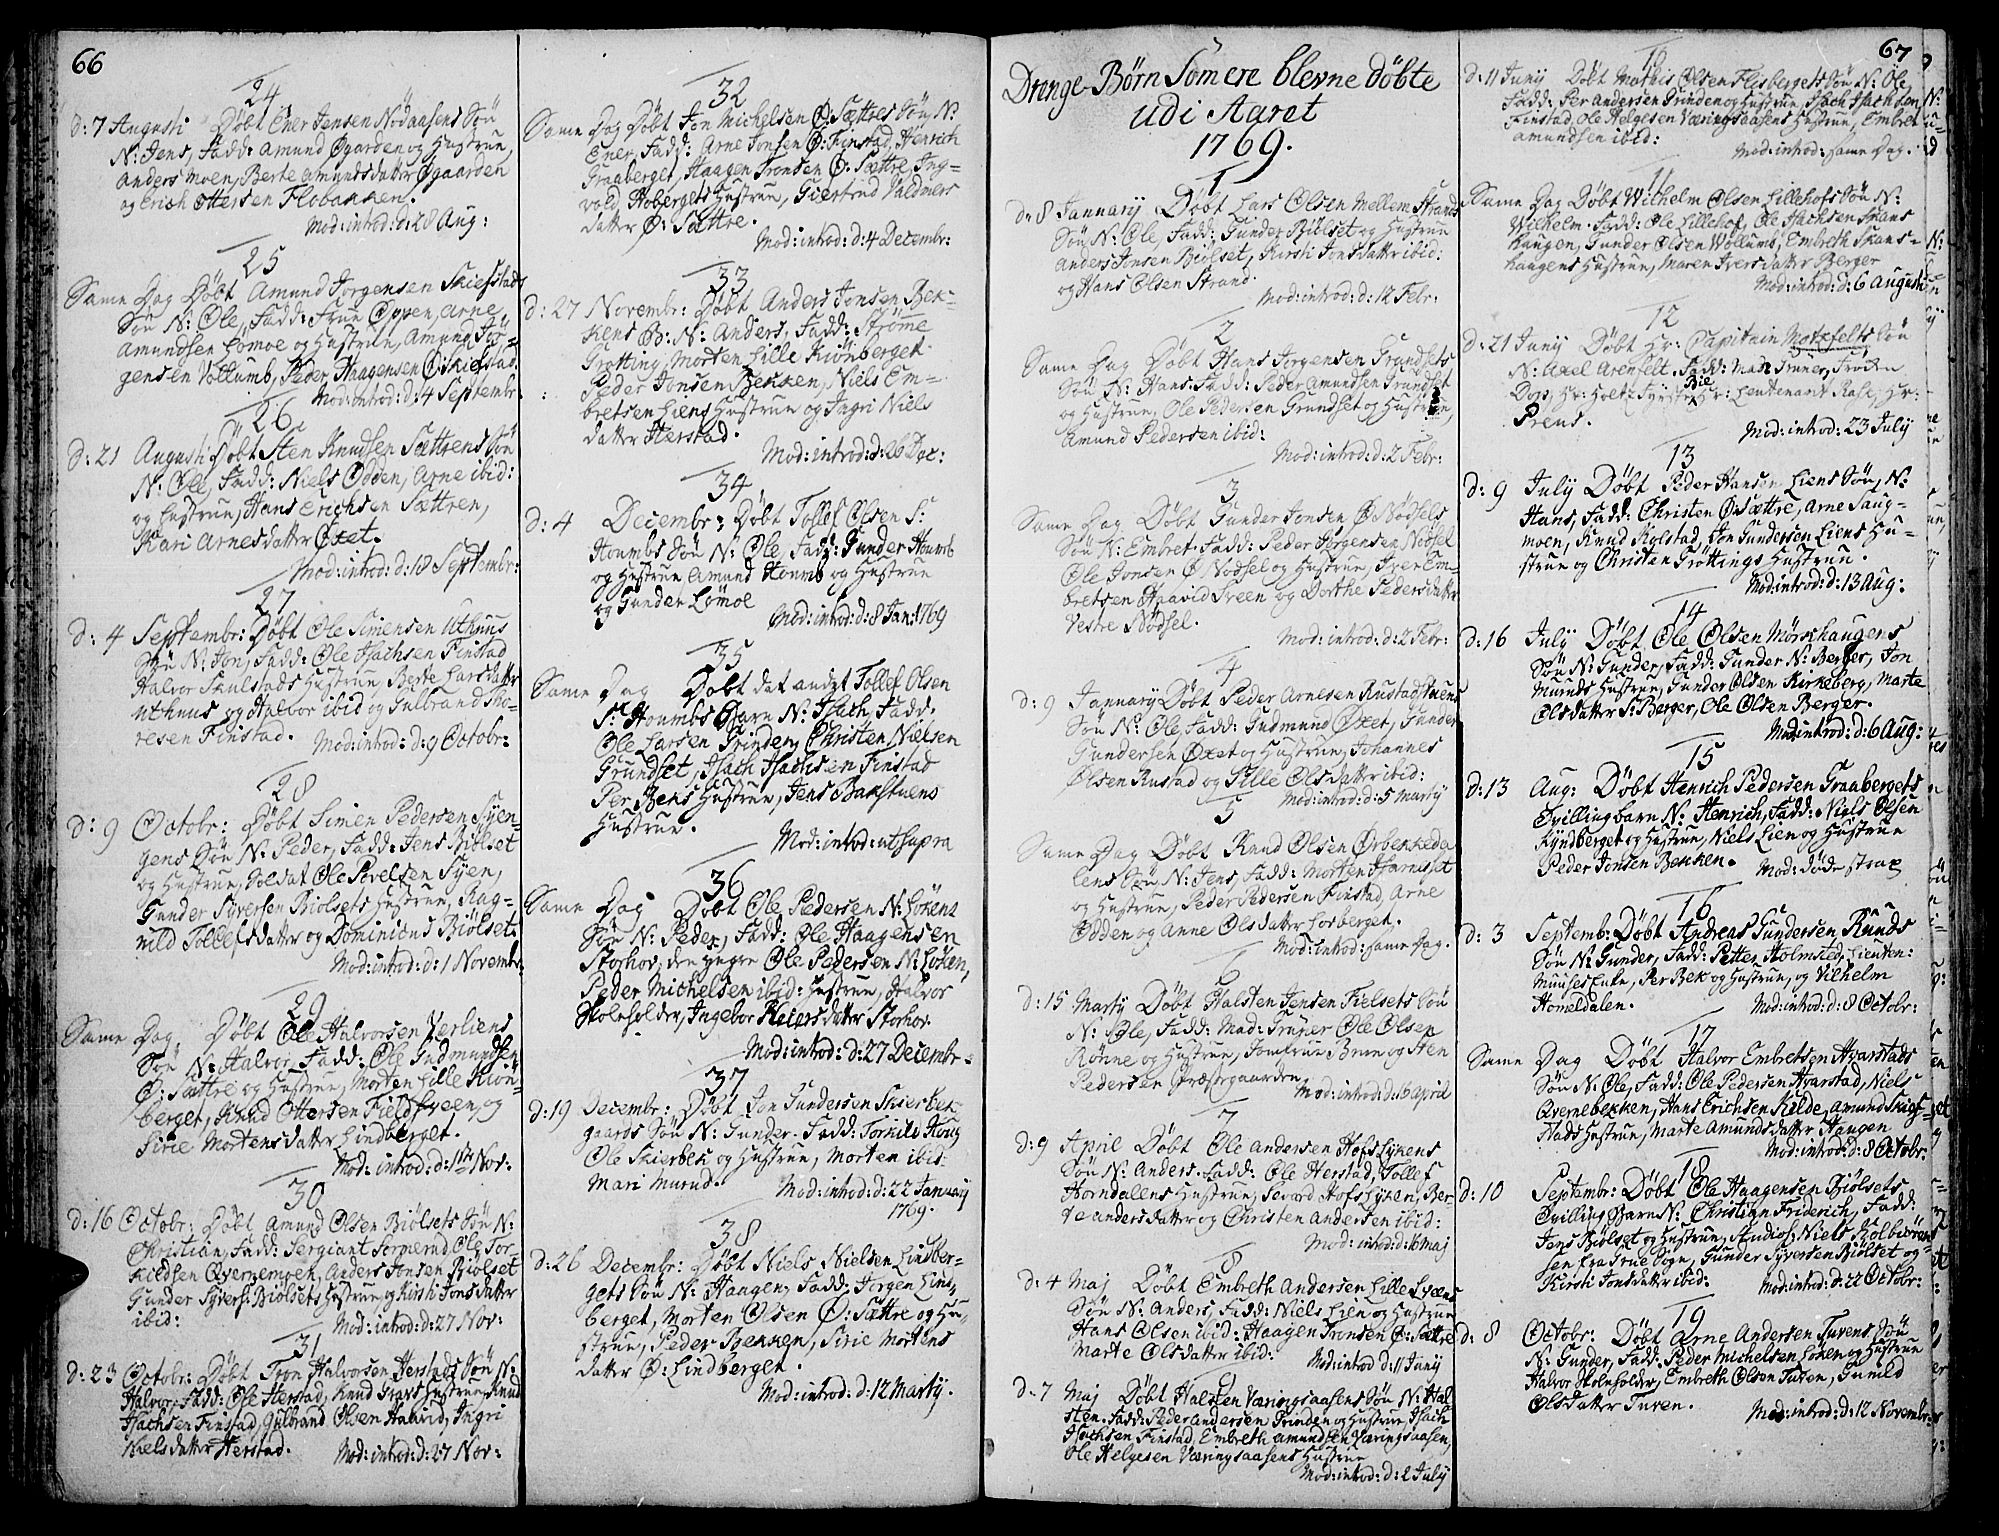 66
24
d: 7 Augusti Døbt Ener Jensen Nødaasens Søn
N: Jens, Fadd: Amund Øgarden og Hustrue,
Anders Moen, Berte Amundsdatter Øgaarden
og Erich Ottersen Flobakken.
Mod: introd: d: 28 Aug:
25
Same Dag Døbt Amund Jørgensen Skiefstads
Søn N: Ole, Fadd: Frue Oppen, Arne
Amundsen Lømoe og Hustrue, Amund Jør-
gensen Vollumb, Peder Haagensen Ø: Skiefstad.
Mod: introd: d: 4 Septembr:
26
d: 21 Augusti Døbt Sten Knudsen Sættrens Søn
N: Ole, Fadd: Niels Odden, Arne ibid:
og Hustrue, Hans Erichsen Sættren,
Kari Arnesdatter Øxet.
Mod: introd: d: 18 Septembr:
27
d: 4 Septembr: Døbt Ole Simensen Uthuus
Søn N: Jon, Fadd: Ole Isachsen Finstad
Halvor Skulstads Hustrue, Berte Larsdatter
Uthuus og Halvor ibid og Gulbrand Tho-
resen Finstad. Mod: introd: d: 9 Octobr:
28
d: 9 Octobr: Døbt Simen Pedersen Syen-
gens Søn N: Peder, Fadd: Jens Biølset
og Hustrue, Soldat Ole Povelsen Syen,
Gunder Syversen Biølsets Hustrue, Rag-
nild Tollefsdatter og Dominicus Biølset.
Mod: introd: d: 1 Novembr:
29
Same Dag. Døbt Ole Halvorsen Verliens
Søn N: Halvor, Fadd: Ole Gudmundsen
Ø: Sættre og Hustrue, Morten Lille Kiøn-
berget, Knud Ottersen Fieldsveen, og
Sirie Mortensdatter Lindberget.
Mod: introd: d: 11te Nov:
30
d: 16 Octobr: Døbt Amund Olsen Biølsets Søn N:
Christian, Fadd: Sergiant Sormerud, Ole Tor-
kildsen Qvernemoen, Anders Jonsen Biølset
Gunder Syvers: Biølsets Hustrue, og Kirsti Jonsdatter
ibid: Mod: introd: d: 27 Nov:
31
d: 23 Octobr: Døbt Tron Halvorsen Herstads Søn N:
Halvor, Fadd: Ole Herstad, Knud Graves Hustrue, Knud
Isachsen Finstad, Gulbrand Olsen Haavid, Ingri
Nielsdatter Herstad. Mod: introd: d: 27 Nov:
32
Same Dag Døbt Jon Michelsen Ø: Sættres Søn N:
Ener, Fadd: Arne Jonsen Ø: Finstad, Henrich
Graaberget, Haagen Tronsen Ø: Sættre, Ing-
vold Hobergets Hustrue, Giertrud Valdmers
datter Ø: Sættre.
Mod: introd: d: 4 Decembr:
33
d: 27 Novembr: Døbt Anders Jonsen Bek-
kens B: N: Anders, Fadd: Strømme
Grøtting, Morten Lille Kiønberget
Peder Jonsen Bekken, Niels Em-
bretsen Liens Hustrue og Ingri Niels
datter Herstad.
Mod: introd: d: 26 Dec:
34
d: 4 Decembr: Døbt Tollef Olsen S:
Houmbs Søn N: Ole, Fadd: Gunder Houmb
og Hustrue Amund Houmb og Hustrue
og Gunder Lømoe
Mod: introd: d: 8 Jan: 1769
35
Same Dag Døbt det andet Tollef Olsen
S: Houmbs Barn N: Isach, Fadd:
Ole Larsen Grinden, Christen Nielsen
Grundset, Isach Isachsen Finstad
Per Beks Hustrue, Jens Bakstuens
Hustrue. Mod: introd: ut supra
36
Same Dag Døbt Ole Pedersen N: Løkens
Søn N: Peder, Fadd: Ole Haagensen
Storhov, den yngre Ole Pedersen N: Løken,
Peder Michelsen ibid: Hustrue, Halvor
Skoleholder, Ingebor Reiersdatter Storhov.
Mod: introd: d: 27 Decembr.
37
d: 19 Decembr: Døbt Jon Gundersen Skierbek-
gaards Søn N: Gunder. Fadd: Torkild Houg
Ole Skierbek og Hustrue, Morten ibid.
Mari Murud. Mod: introd: d: 22 January
1769.
38
d: 26 Decembr: Døbt Niels Nielsen Lindber-
gets Søn N: Haagen, Fadd: Jørgen Lind-
berget, Morten Olsen Ø: Sættre og Hu-
strue, Peder Bekken, Sirie Mortens
datter Ø: Lindberget.
Mod: introd: d: 12 Marty.
67
Drenge-Børn Som ere blevne døbte
udi Aaret
1769.
1
d: 8 January Døbt Lars Olsen Mellem Strands
Søn N: Ole, Fadd: Gunder Biølset og Hustrue
Anders Jonsen Biølset, Kirsti Jonsdatter ibid:
og Hans Olsen Strand.
Mod: introd: d: 12 Febr:
2
Same Dag Døbt Hans Jørgensen Grundsets
Søn N: Hans. Fadd: Peder Amundsen Grundset
og Hustrue, Ole Pedersen Grundset og Hustrue,
Amund Pedersen ibid:
Mod: introd: d: 2 Febr:
3
Same Dag Døbt Gunder Jonsen Ø: Nødsels
Søn N: Embret. Fadd: Peder Jørgensen Nødsel
Ole Jonsen Ø: Nødsel og Hustrue, Iver Em-
bretsen Haavid Sveen og Dorthe Pedersdatter
Vestre Nødsel.
Mod: introd: d: 2 Febr:
4
d: 9 January Døbt Peder Arnesen Rustad
Søn N: Ole, Fadd: Gudmund Øxet, Gunder
Gundersen Øxet og Hustrue, Johannes
Olsen Rustad og Sille Olsdatter ibid:
Mod: introd: d: 5 Marty
5
Same Dag Døbt Knud Olsen Ørbekkeda-
lens Søn N: Jens, Fadd: Morten Hiarnæset
og Hustrue, Peder Pedersen Finstad, Arne
Odden og Anne Olsdatter Lørberget.
Mod: introd: same Dag.
6
d: 15 Marty Døbt Halsten Jensen Fielsets Søn
N: Ole, Fadd: Mad: Gruner Ole Olsen
Rønne og Hustrue, Jomfrue Brun og Sten
Pedersen Præstegaarden
Mod: introd: d: 16 April
7
d: 9 April Døbt Ole Andersen Hofs Lykens
Søn N: Anders. Fadd: Ole Herstad, Tollef
Horndallens Hustrue, Sevard Hofs Lyken, Ber-
te Andersdatter og Christen Andersen ibid:
Mod: introd: d: 16 Maj
8
d: 4 Maj Døbt Embreth Andersen Lille Lyens
Søn N: Anders, Fadd: Niels Lien og Hustrue
Hans Olsen ibid: Haagen Tronsen Ø: Sættre
Marte Olsdatter ibid: Mod: introd d: 11 Juny
9
d: 7 Maj Døbt Halsten Væringsaasens Søn N: Hal-
sten. Fadd: Peder Andersen Grinden og Hustrue Isach
Isachsen Finstad, Embreth Amundsen Væringsaasen,
Ole Helgesen Væringsaasens Hustrue
Mod: introd: d: 2 July
10
d: 11 Juny Døbt Mathis Olsen Flisbergets Søn N: Ole
Fadd: Per Andersen Grinden og Hustrue, Isach Isachsen
Finstad, Ole Helgesen Væringsaasens Hustrue, Embret
Amundsen ibid:
Mod: introd: same Dag.
11
Same Dag Døbt Wilhelm Olsen Lillehofs Søn N:
Wilhelm. Fadd: Ole Lillehof, Ole Isachsen Skans
haugen, Gunder Olsen Vollumb, Embreth Skans-
haugens Hustrue, Maren Iversdatter Berger
Mod: introd: d: 6 Augusti
12
d: 21 Juny Døbt Hr: Capitain Motzfelts Søn
N: Axel Arenfelt. Fadd: Mad: Gruner, Frøiken
Hr: Lieutenant Rasch, Hr:
Preus.
Mod: introd: 23 July
13
d: 9 July Døbt Peder Hansen Liens Søn, N:
Hans, Fadd: Christen Ø: Sættre, Arne Haug-
moen, Knud Kolstad, Jon Gundersen Liens Hu-
strue og Christen Grøttings Hustrue.
Mod: introd: d: 13 Aug:
14
d: 16 July Døbt Ole Olsen Mørkhaugens
Søn N: Gunder, Fadd: Gunder N: Berger, Jon
Muruds Hustrue, Gunder Olsen Kirkeberg, Marte
Olsdatter S: Berger, Ole Olsen Berger.
Mod: introd: d: 6 Aug:
15
d: 13 Aug: Døbt Henrich Pedersen Graabergets
Tvillingbarn N: Henrich, Fadd: Niels Olsen
Kyndberget og Hustrue, Niels Lien og Hustrue
Peder Jonsen Bekken. Mod: døde strax
16
d: 3 Septemb: Døbt Andreas Gundersen Ruuds
Søn N: Gunder, Fadd: Petter Holmsted, Lieuten:
Muuses Enke, Per Bek og Hustrue, og Vilhelm
Homeldalen. Mod: introd: d: 8 Octobr:
17
Same Dag Døbt Halvor Embretsen Hvarstads
Søn N: Ole, Fadd: Ole Pedersen Hvarstad, Niels
Qvernebekken, Hans Erichsen Kilde, Amund Skief-
stads Hustrue, Marte Amundsdatter Haugen
Mod: introd: d: 8 Octobr:
18
d: 10 Septembr: Døbt Ole Haagensen Biølsets
Tvilling Barn N: Christian Friderich, Fadd:
Jens Biølset og Hustrue, Studios: Niels
sen fra Grue Sogn, Gunder Syversen Biølset og
Kirsti Jonsdatter ibid: Mod: introd: d: 22 Octobr:
19
d: 8 Octobr: Døbt Arne Andersen Turens Søn
N: Gunder, Fadd: Peder Michelsen Løken og Hustrue
Halvor Skoleholder, Embreth Olsen Turen, Gunild
Olsdatter Turen. Mod: introd: d: 12 Novembr: